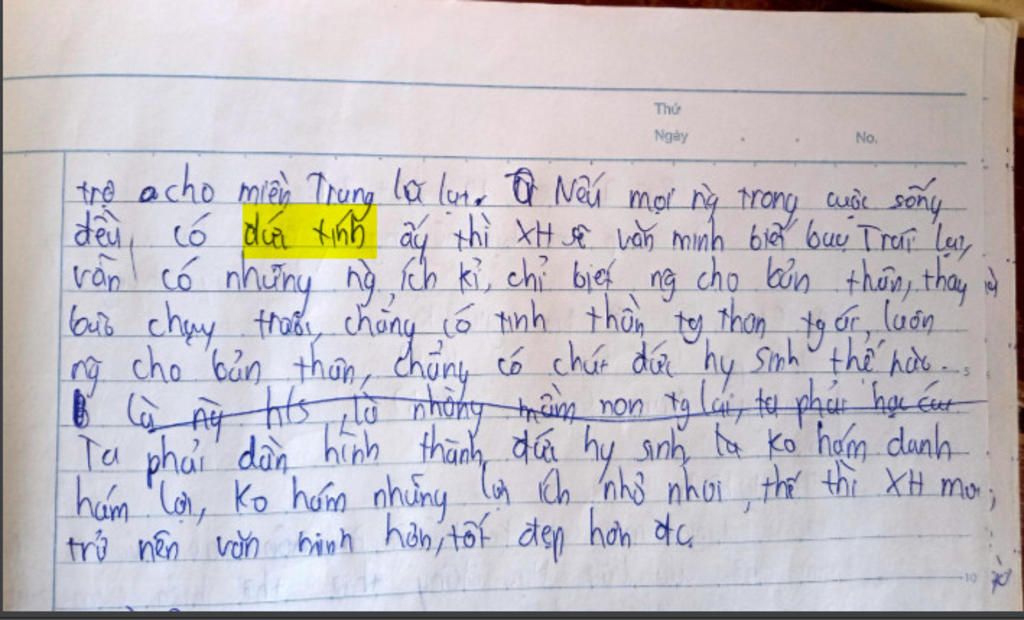 Thứ
Ngày . . No.
trợ cho miền Trung lũ lụt. Nếu mọi ng trong cuộc sống
đều có đức tính ấy thì XH sẽ văn minh biết bao Trái lại,
vẫn có những ng ích kỉ, chỉ biết ng cho bản thân, thấy
chạy trước, chẳng có tinh thần tg thân tg ái, luôn
ng cho bản thân, chẳng có chút đức hy sinh thế nào...
Là ng h/s, là những mầm non tg lai, ta phải học các
Ta phải dần hình thành đức hy sinh, ta ko hám danh
hám lợi, ko hám những lợi ích nhỏ nhoi, thế thì XH mới
trở nên văn minh hơn, tốt đẹp hơn đc.
10